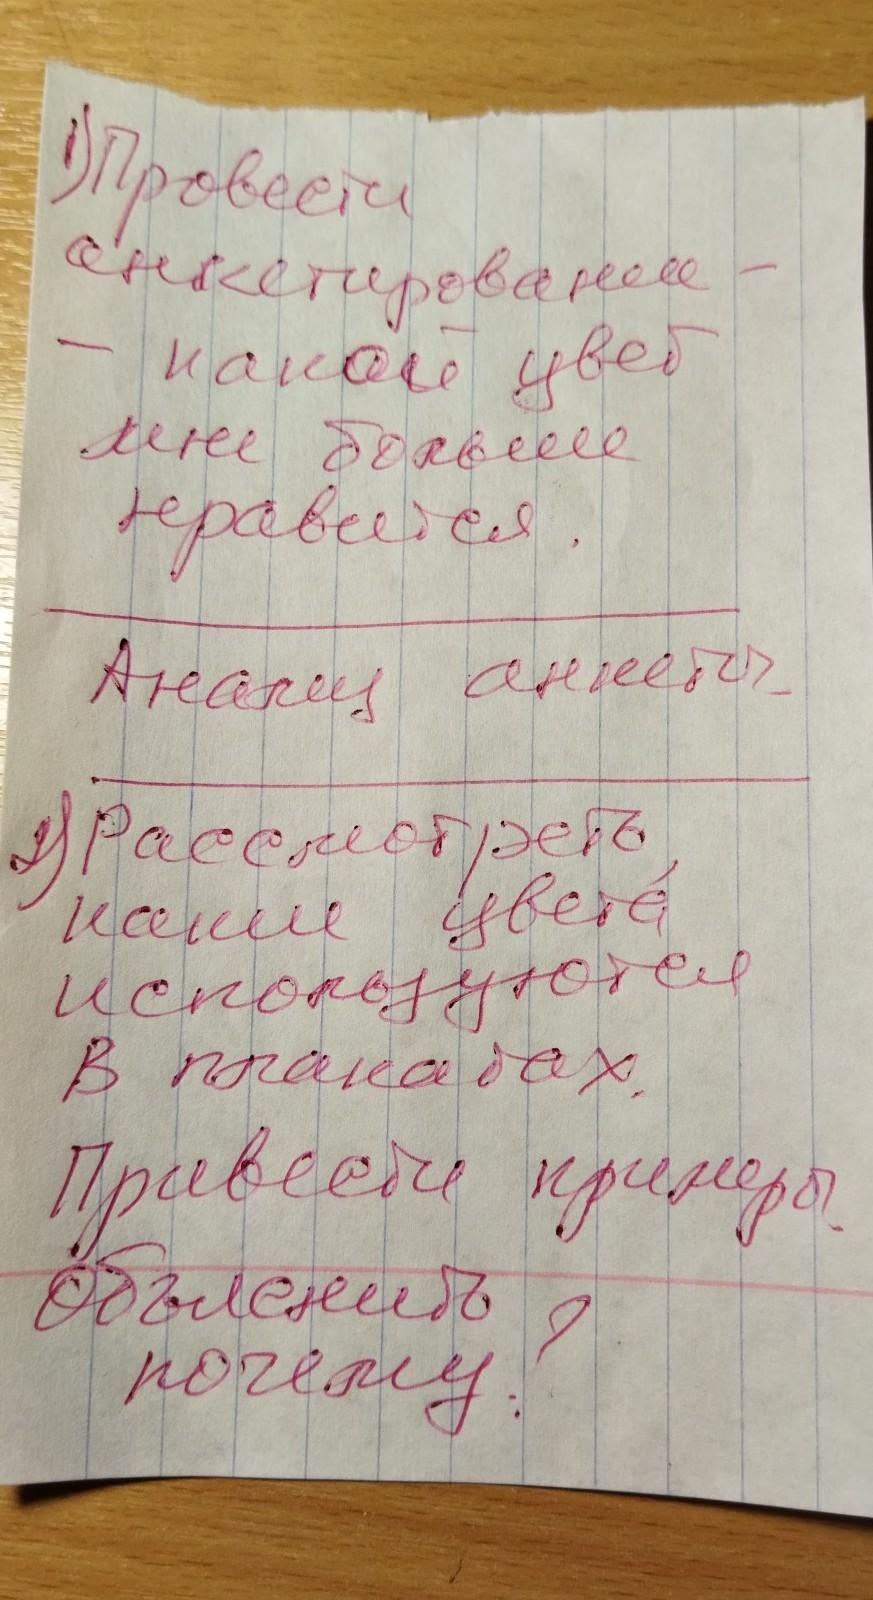 1) Провести
анкетирование -
- какой цвет
мне больше
нравится.
Анализ анкеты.
2) Рассмотреть,
какие цвета
используются
в плакатах.
Привести примеры.
Объяснить
почему?